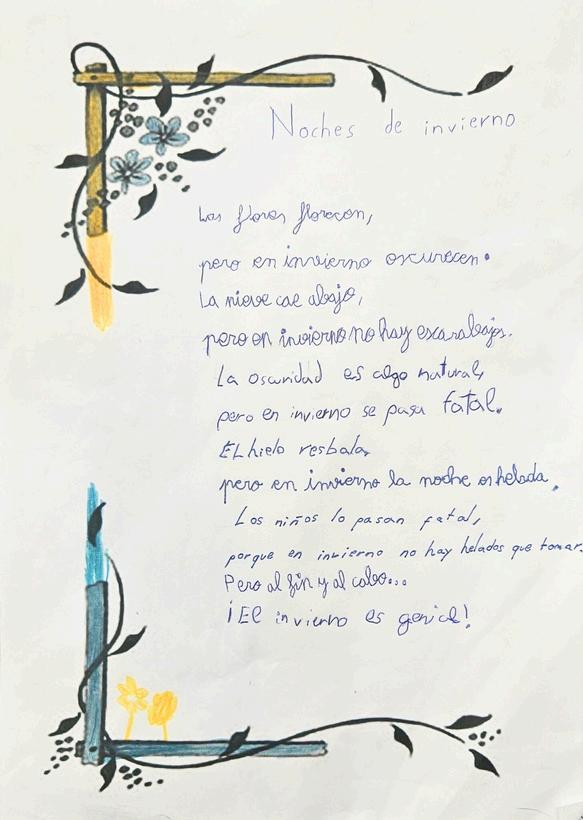 Noches de invierno
Las flores florecen,
pero en invierno oscurecen.
La nieve cae abajo,
pero en invierno no hay escarabajos.
La oscuridad es algo natural,
pero en invierno se pasa fatal.
El hielo resbala,
pero en invierno la noche es helada.
Los niños lo pasan fatal,
porque en invierno no hay helados que tomar.
Pero al fin y al cabo...
¡El invierno es genial!